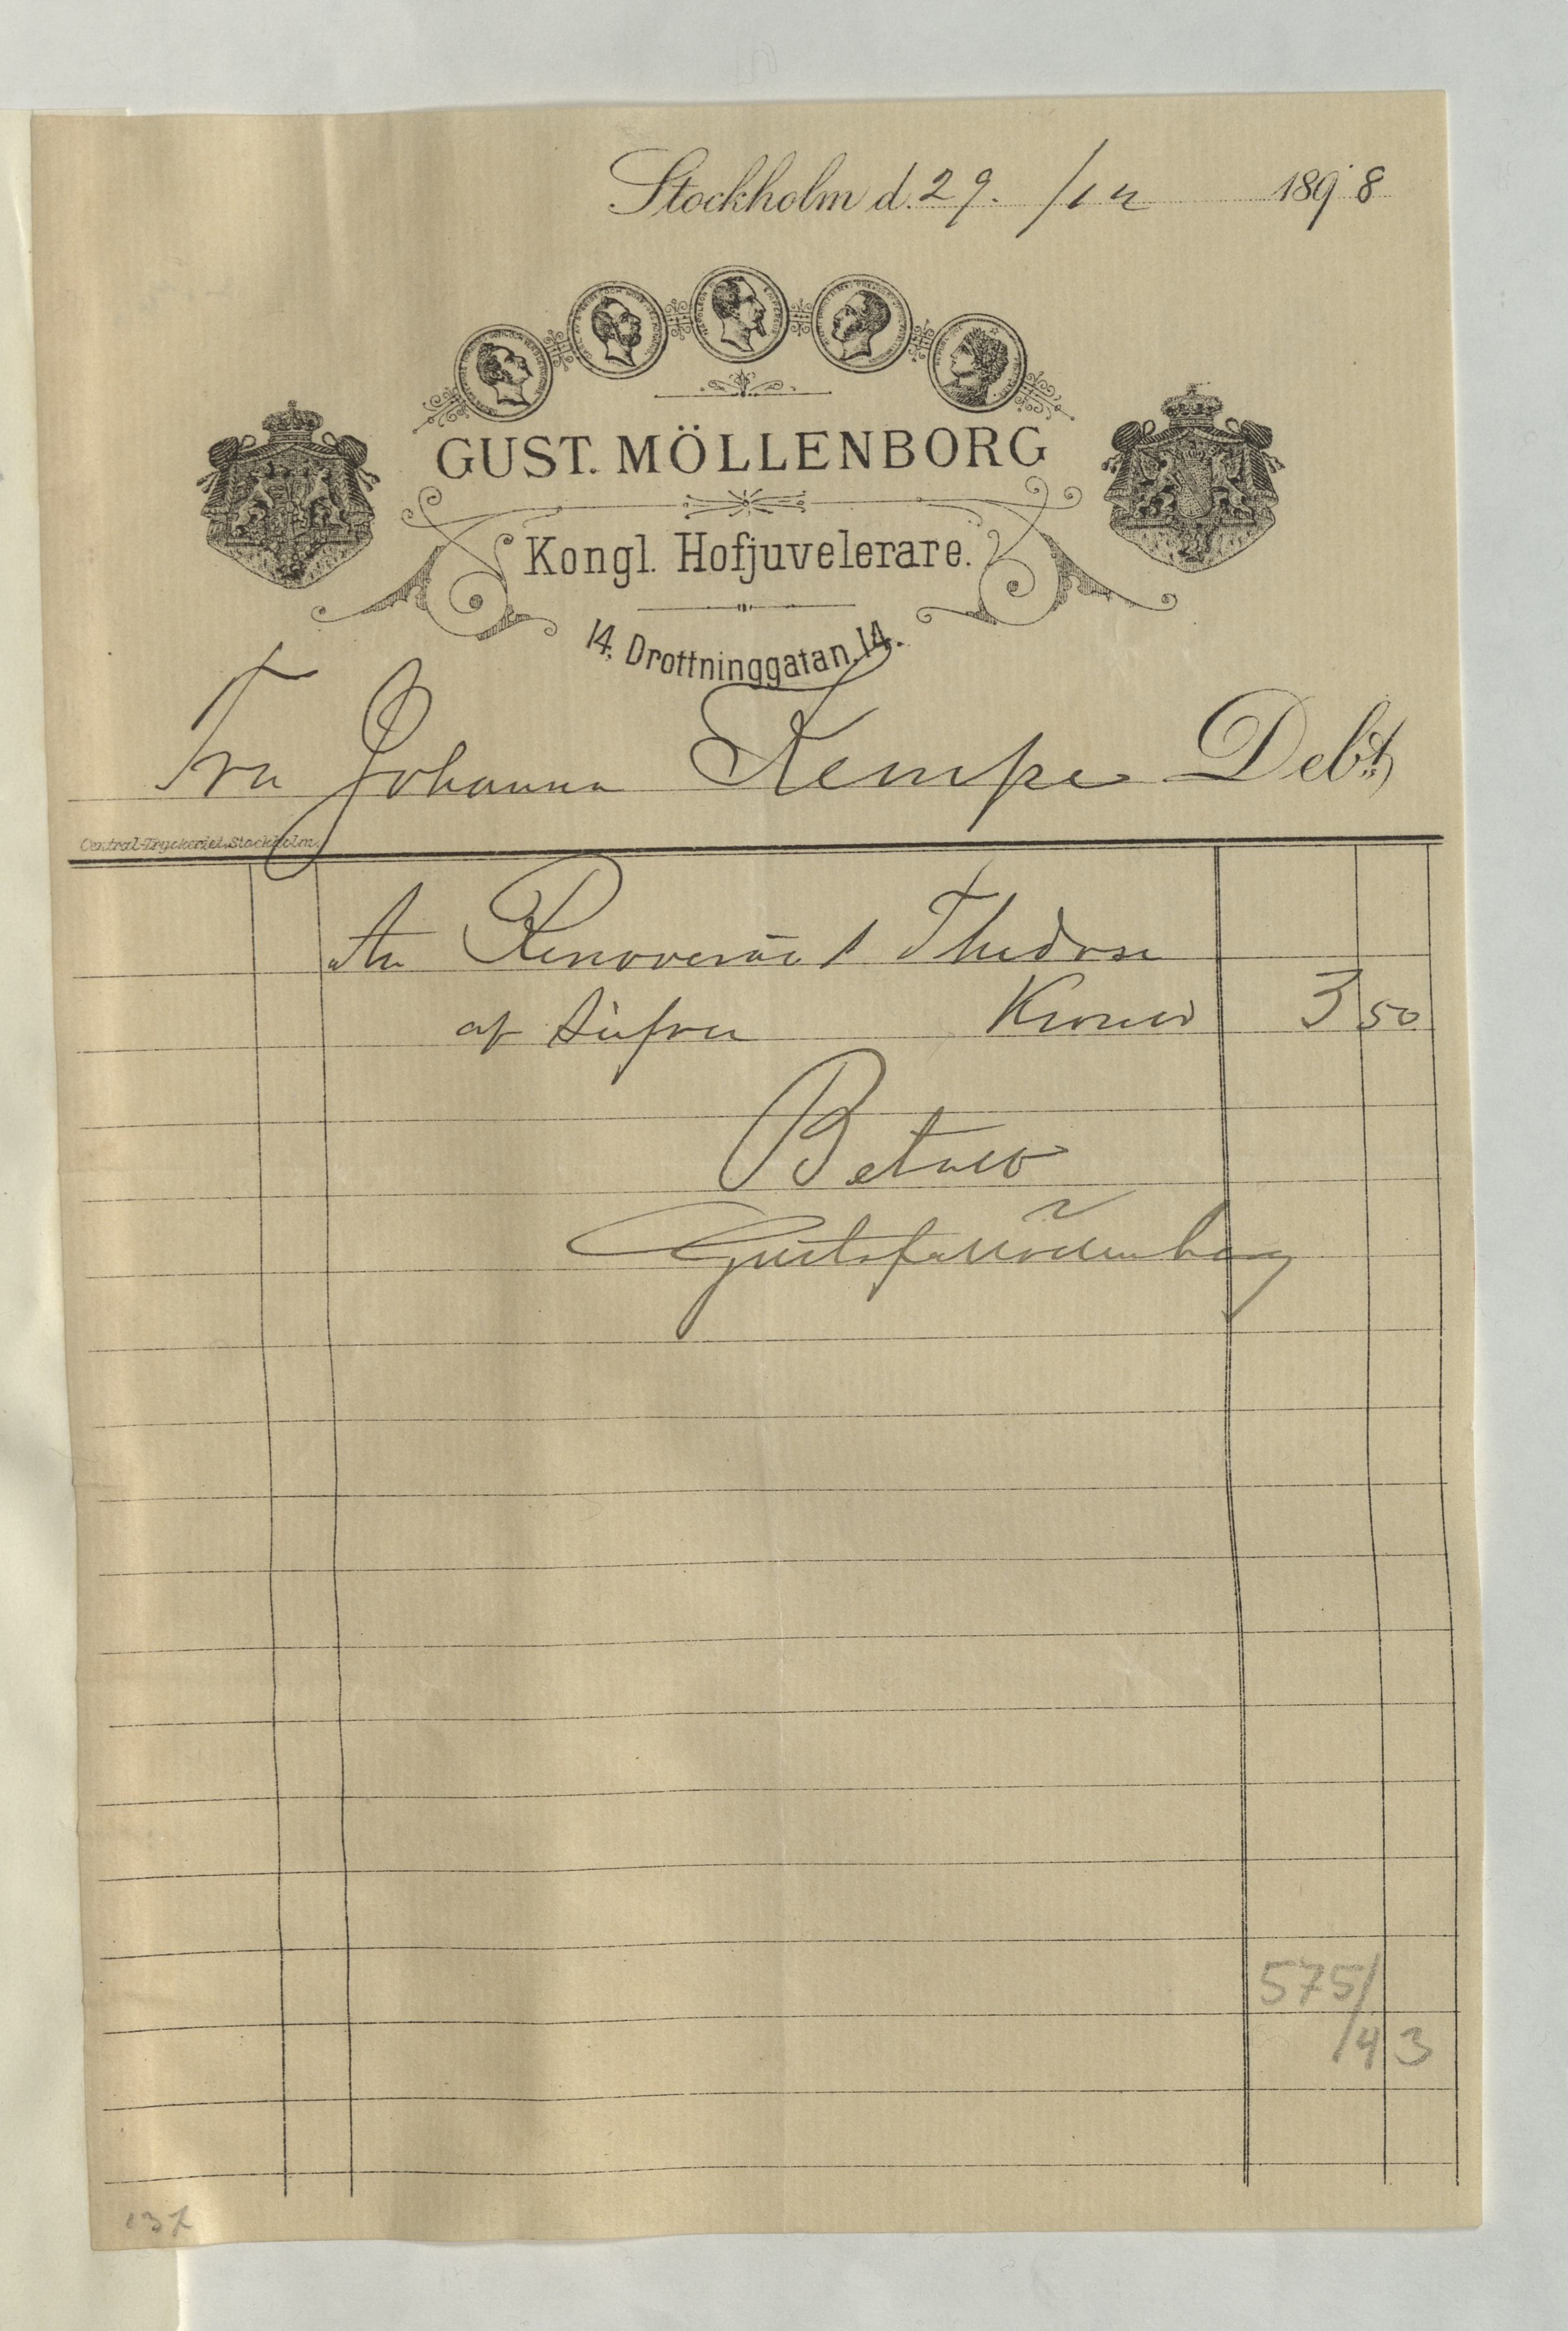 Stockholm d. 29. /12 1898
GUST. MÖLLENBORG
Kongl. Hofjuvelerare.
14. Drottninggatan. 14.
Fru Johanna Kempe Debt.
Central-Tryckeriet, Stockholm.
An Renoverat 1 Thedosa
af Silfver Kronor 3 50
Betalt
Gustaf Möllenborg
575/
/43
137